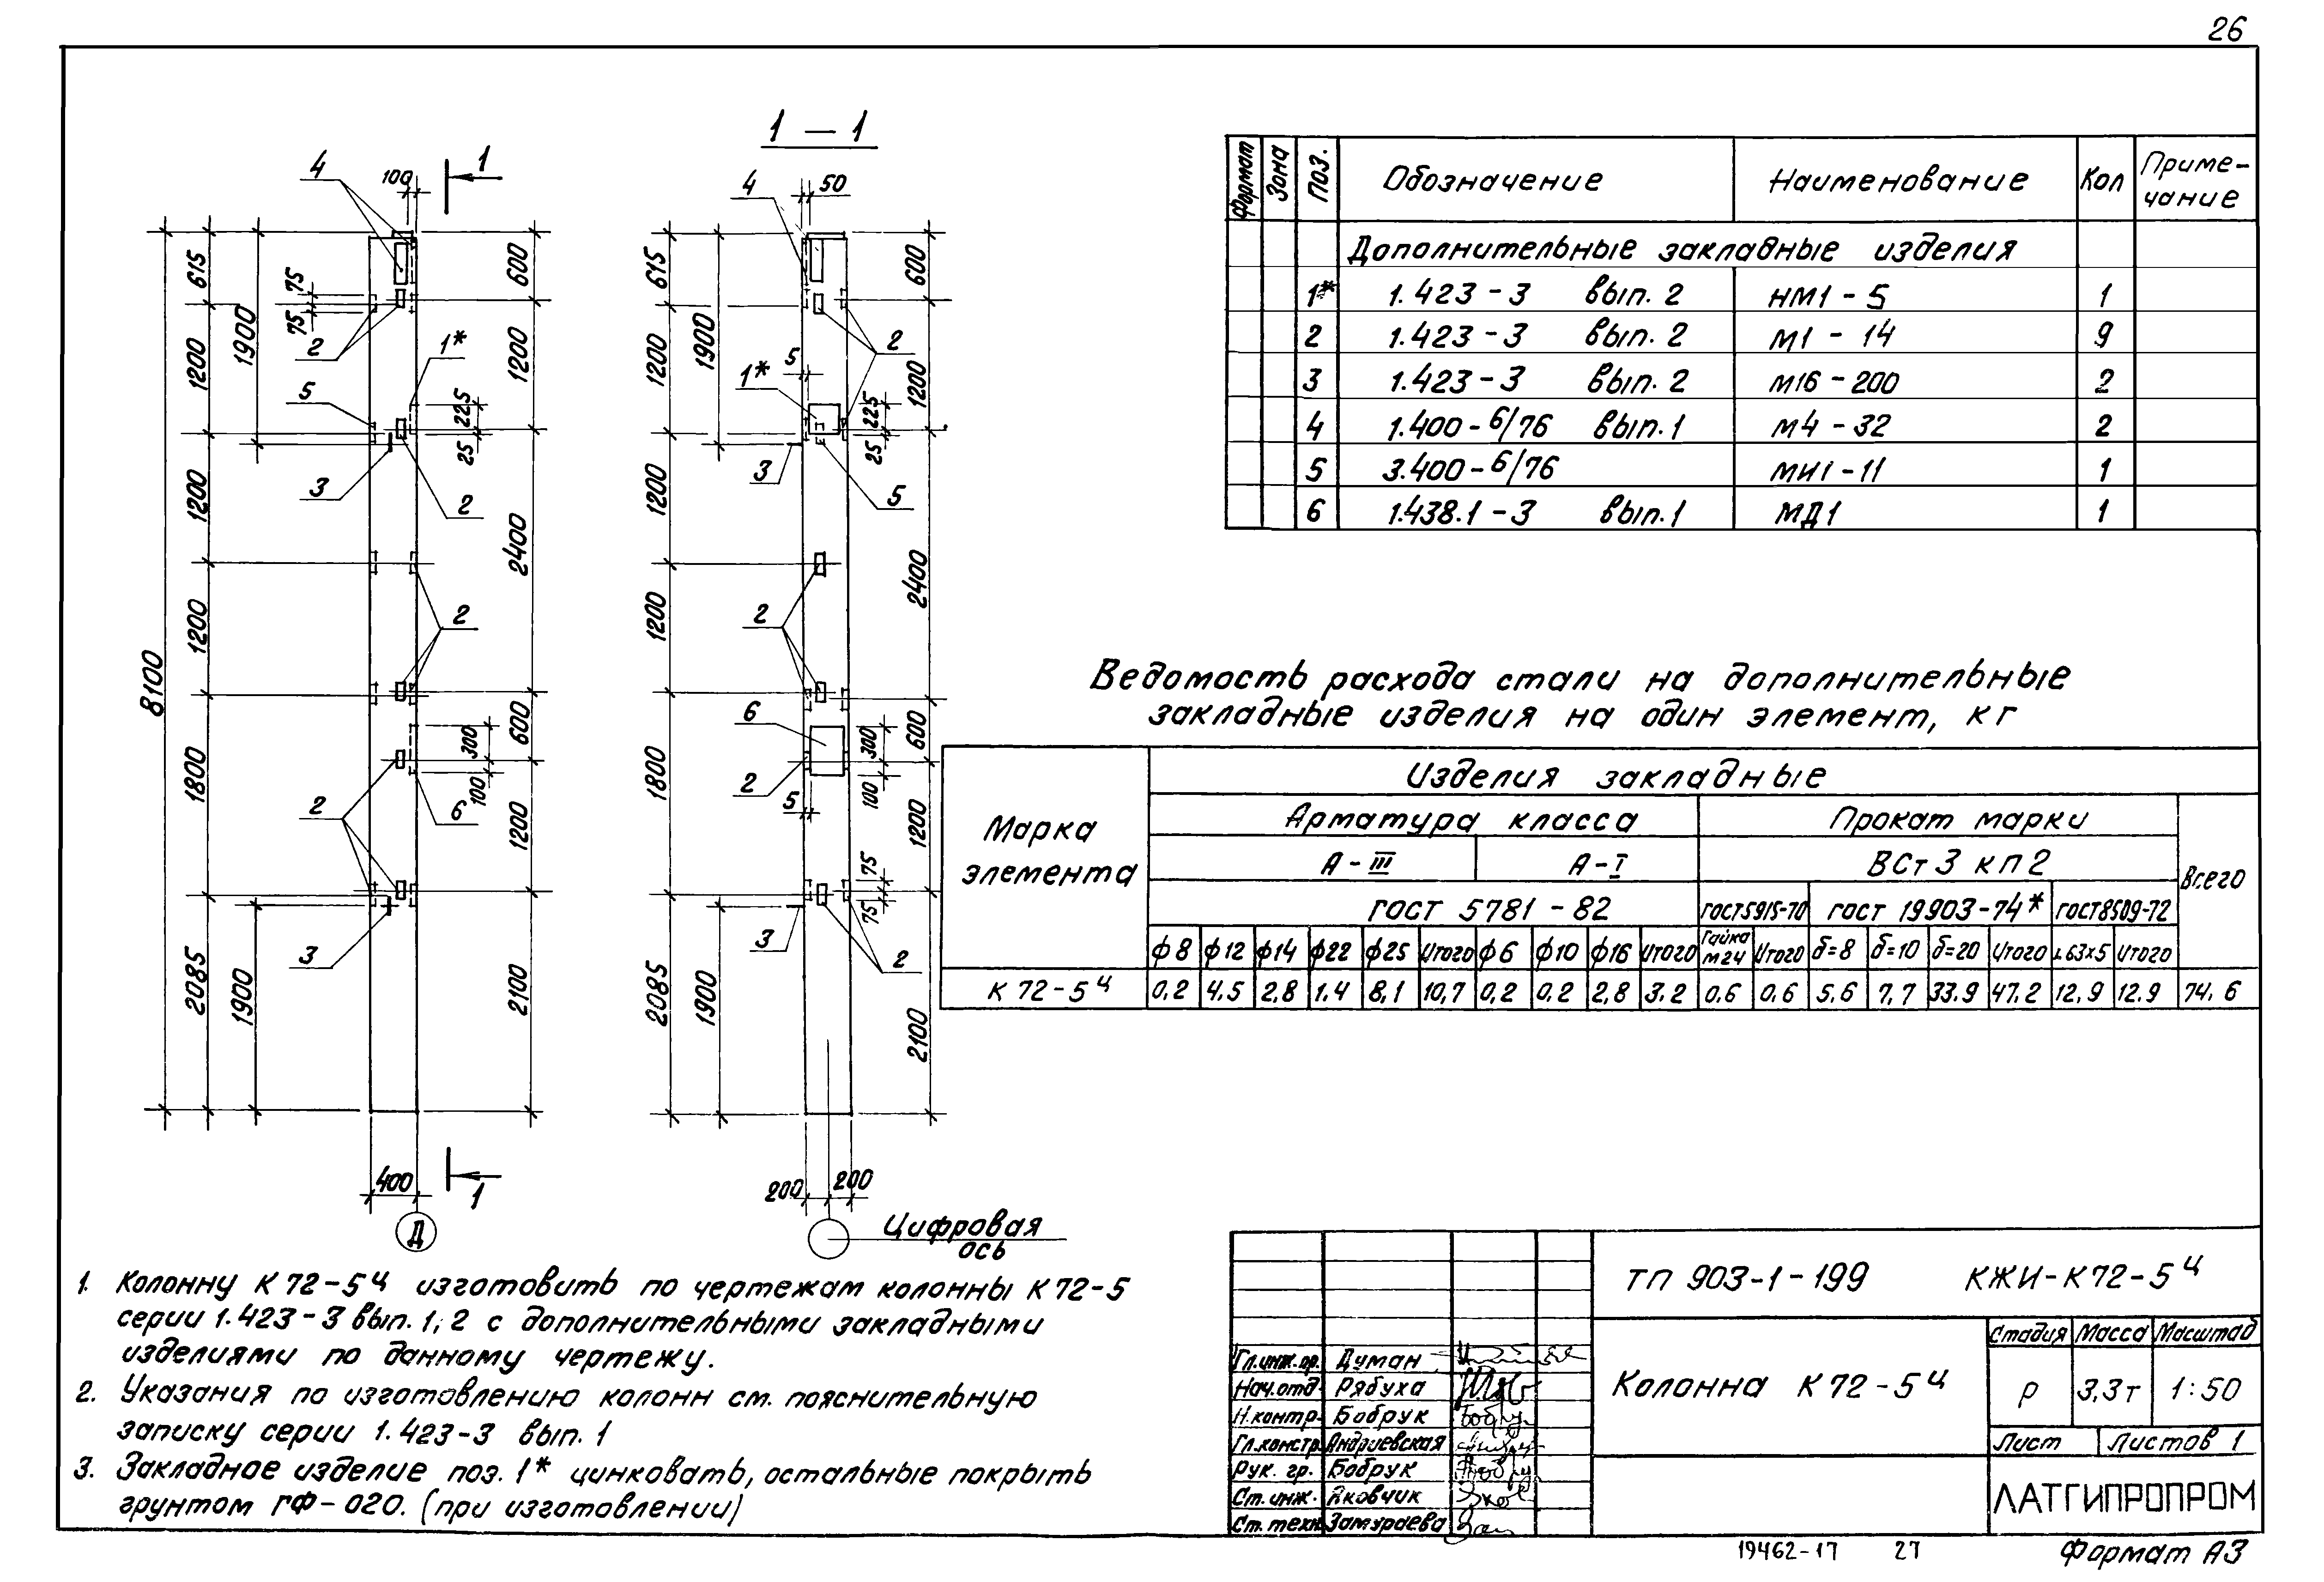 26
1 — 1
4
100
1
615
75
75
1900
1200
2
1*
5
600
1200
225
25
3
2
1200
2400
1200
2
8100
600
300
100
1800
2
6
1200
3
2085
1900
2100
400
1
Д
4
50
615
600
1900
1200
5
2
1*
1200
225
25
3
5
1200
2400
1200
2
6
600
300
100
2
5
1800
1200
75
75
3
2
2085
1900
2100
200
200
Цифровая
ось
Формат Зона Поз. Обозначение Наименование Кол Приме-
чание
Дополнительные закладные изделия
1* 1.423-3 вып. 2 НМ1-5 1
2 1.423-3 вып. 2 М1-14 9
3 1.423-3 вып. 2 М16-200 2
4 1.400-6/76 вып. 1 М4-32 2
5 3.400-6/76 МИ1-11 1
6 1.438.1-3 вып. 1 МД1 1
Ведомость расхода стали на дополнительные
закладные изделия на один элемент, кг
Марка
элемента
Изделия закладные
Арматура класса Прокат марки
А-III А-I ВСт3кп2
Всего
ГОСТ 5781-82 ГОСТ5915-70 ГОСТ 19903-74* ГОСТ8509-72
ф8 ф12 ф14 ф22 ф25 Итого ф6 ф10 ф16 Итого Гайка М24 Итого δ=8 δ=10 δ=20 Итого ∟63×5 Итого
К72-5ч 0,2 4,5 2,8 1,4 8,1 10,7 0,2 0,2 2,8 3.2 0,6 0,6 5,6 7,7 33.9 47.2 12,9 12.9 74,6
1. Колонну К72-5ч изготовить по чертежам колонны К72-5
серии 1.423-3 вып. 1, 2 с дополнительными закладными
изделиями по данному чертежу.
2. Указания по изготовлению колонн см. пояснительную
записку серии 1.423-3 вып. 1
3. Закладное изделие поз. 1* цинковать, остальные покрыть
грунтом ГФ-020. (при изготовлении)
ТП 903-1-199 КЖИ-К72-5ч
Колонна К72-5ч
Стадия Масса Масштаб
Р 3,3т 1:50
Лист Листов 1
ЛАТГИПРОПРОМ
Гл.инж.пр. Думан
Нач.отд. Рябуха
Н.контр. Бобрук
Гл.констр. Андриевская
Рук. гр. Бобрук
Ст.инж. Яковчик
Ст.техн. Замураева
19462-17 27
Формат А3